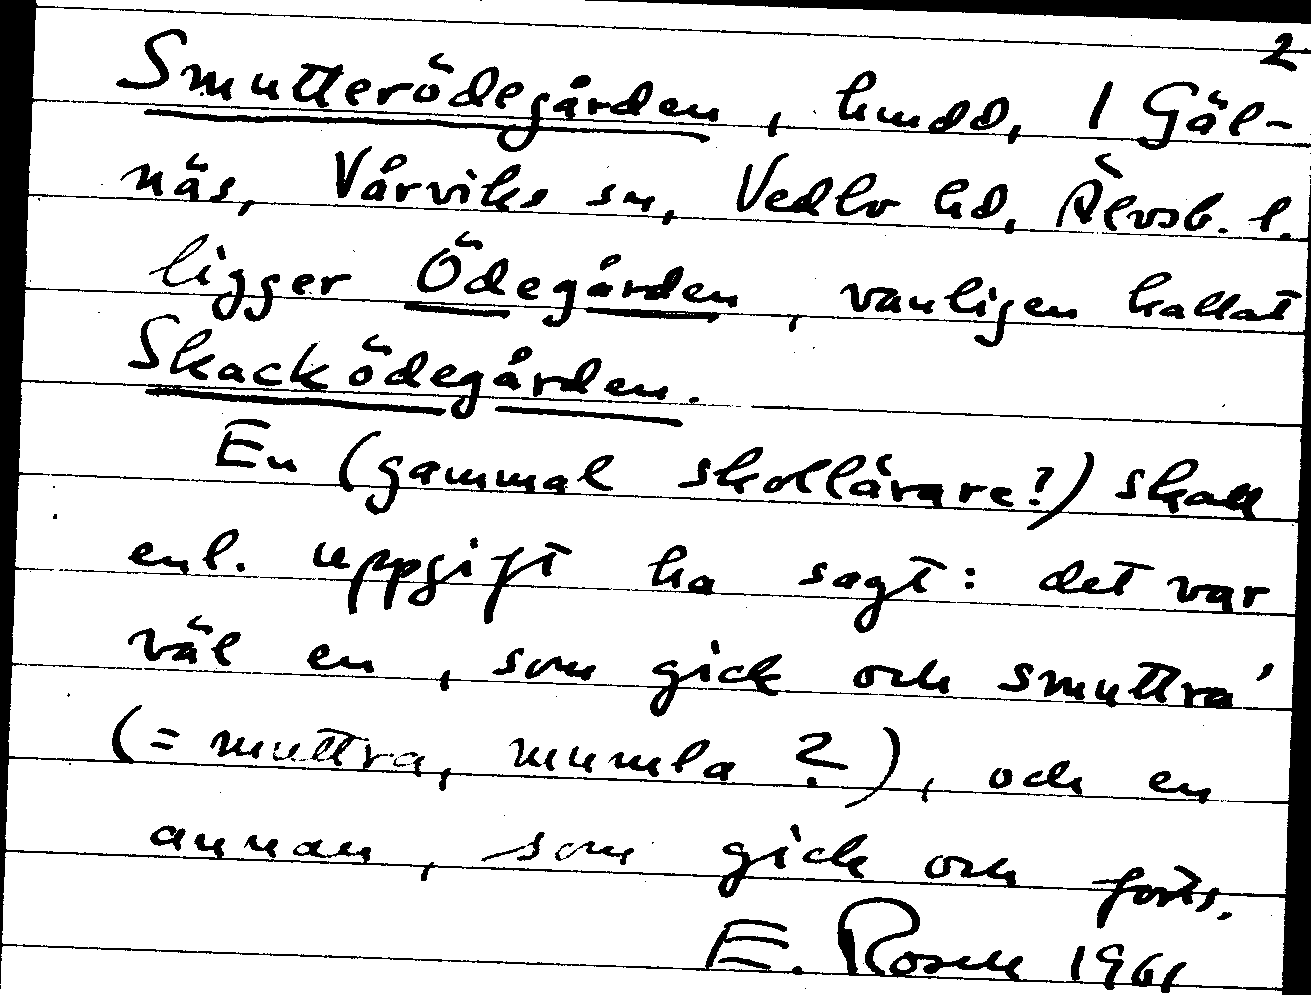 2
Smutterödegården, hmdd, 1 Gäl-
näs, Vårviks sn, Vedbo hd, Älvsb. l.
ligger Ödegården, vanligen kallat
Skacködegården.
En (gammal skollärare?) skall
enl. uppgift ha sagt: det var
väl en, som gick och smuttra'
(= muttra, mumla ?), och en
annan, som gick och forts.
E. Rosell 1961